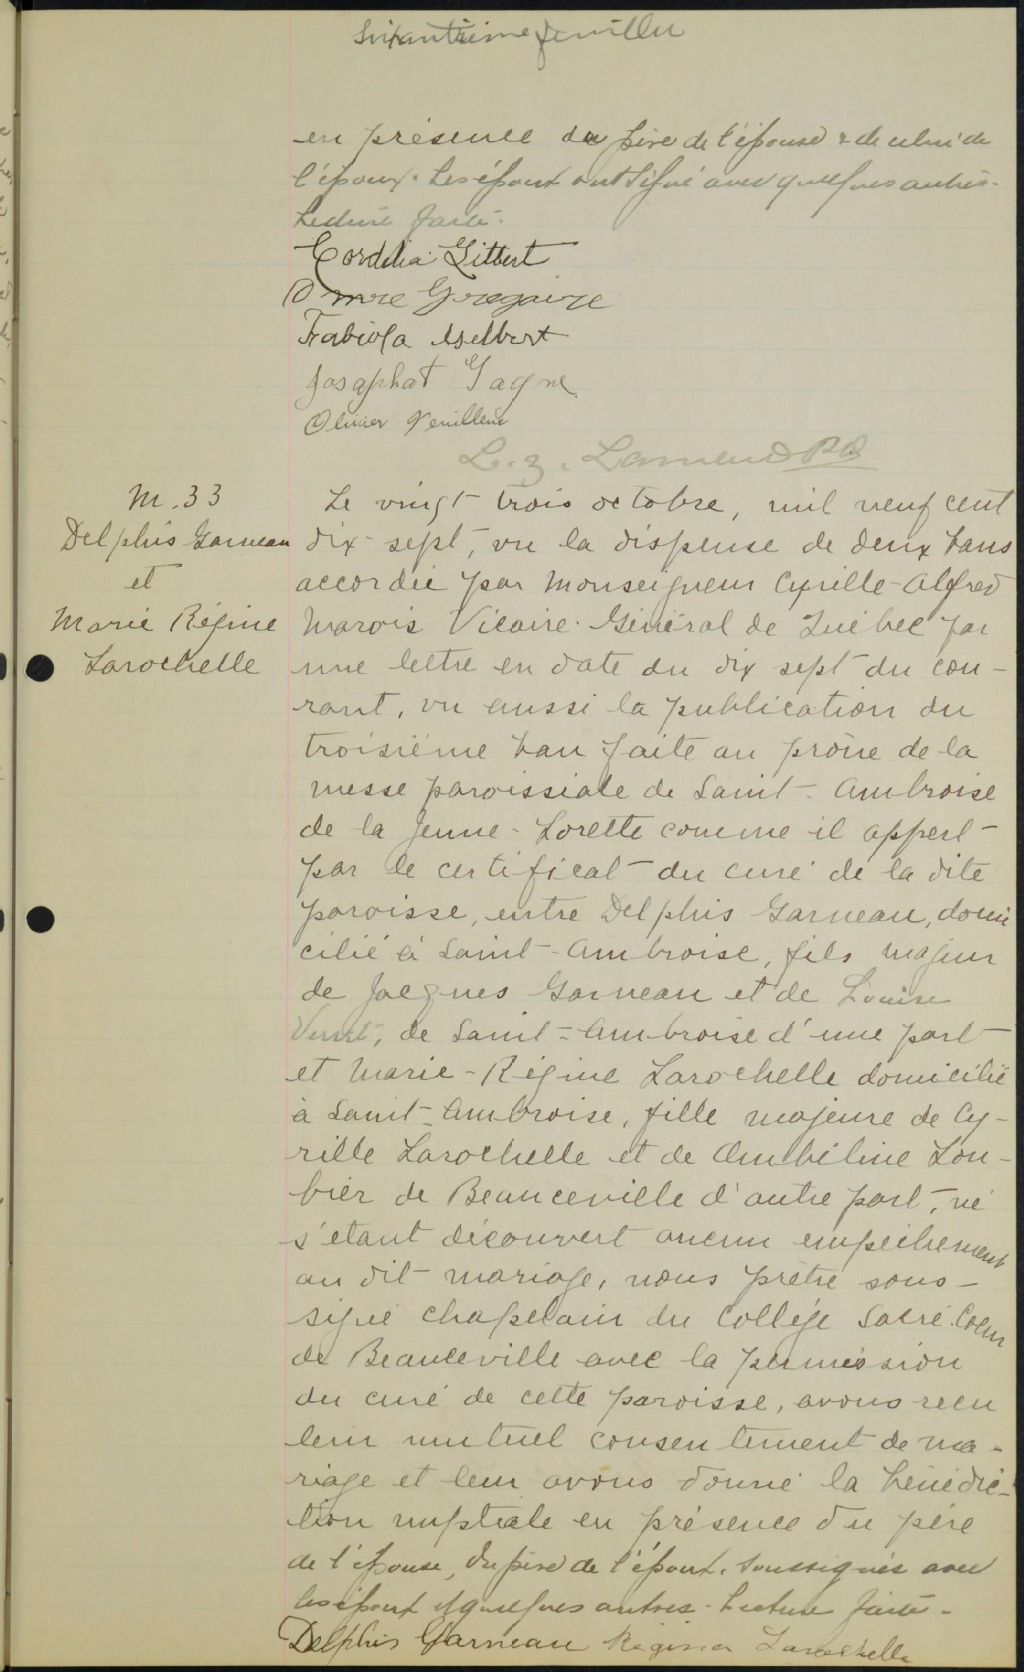 Soixantième feuillet
en présence du père de l'épouse & de celui de
l'époux. Les époux ont signé avec quelques autres.
Lecture faite.
Cordelia Gilbert
Omere Gregoire
Fabiola Gilbert
Josaphat Gagne
Olivier Veuilleux
M. 33
Delphis Garneau
et
Marie Régine
Larochelle
Le vingt trois octobre, mil neuf cent
dix-sept, vu la dispense de deux bans
accordée par Monseigneur Cyrille-Alfred
Marois Vicaire-Général de Québec par
une lettre en date du dix sept du cou-
rant, vu aussi la publication du
troisième ban faite au prône de la
messe paroissiale de Saint-Ambroise
de la Jeune-Lorette comme il appert
par le certificat du curé de la dite
paroisse, entre Delphis Garneau, domi
cilié à Saint-Ambroise, fils majeur
de Jacques Garneau et de Louise
de Saint-Ambroise d'une part
et Marie-Régine Larochelle domicilié
à Saint-Ambroise, fille majeure de Cy-
rille Larochelle et de Ombéline Lou-
bier de Beauceville d'autre part, ne
s'étant découvert aucun empêchement
au dit mariage, nous prêtre sous-
signé chapelain du Collège Sacré-Coeur
de Beauceville avec la permission
du curé de cette paroisse, avons reçu
leur mutuel consentement de ma-
riage et leur avons donné la bénédic-
tion nuptiale en présence du père
de l'épouse, du père de l'époux, soussignés avec
les époux & quelques autres. Lecture faite.
Delphis Garneau Régina Larochelle